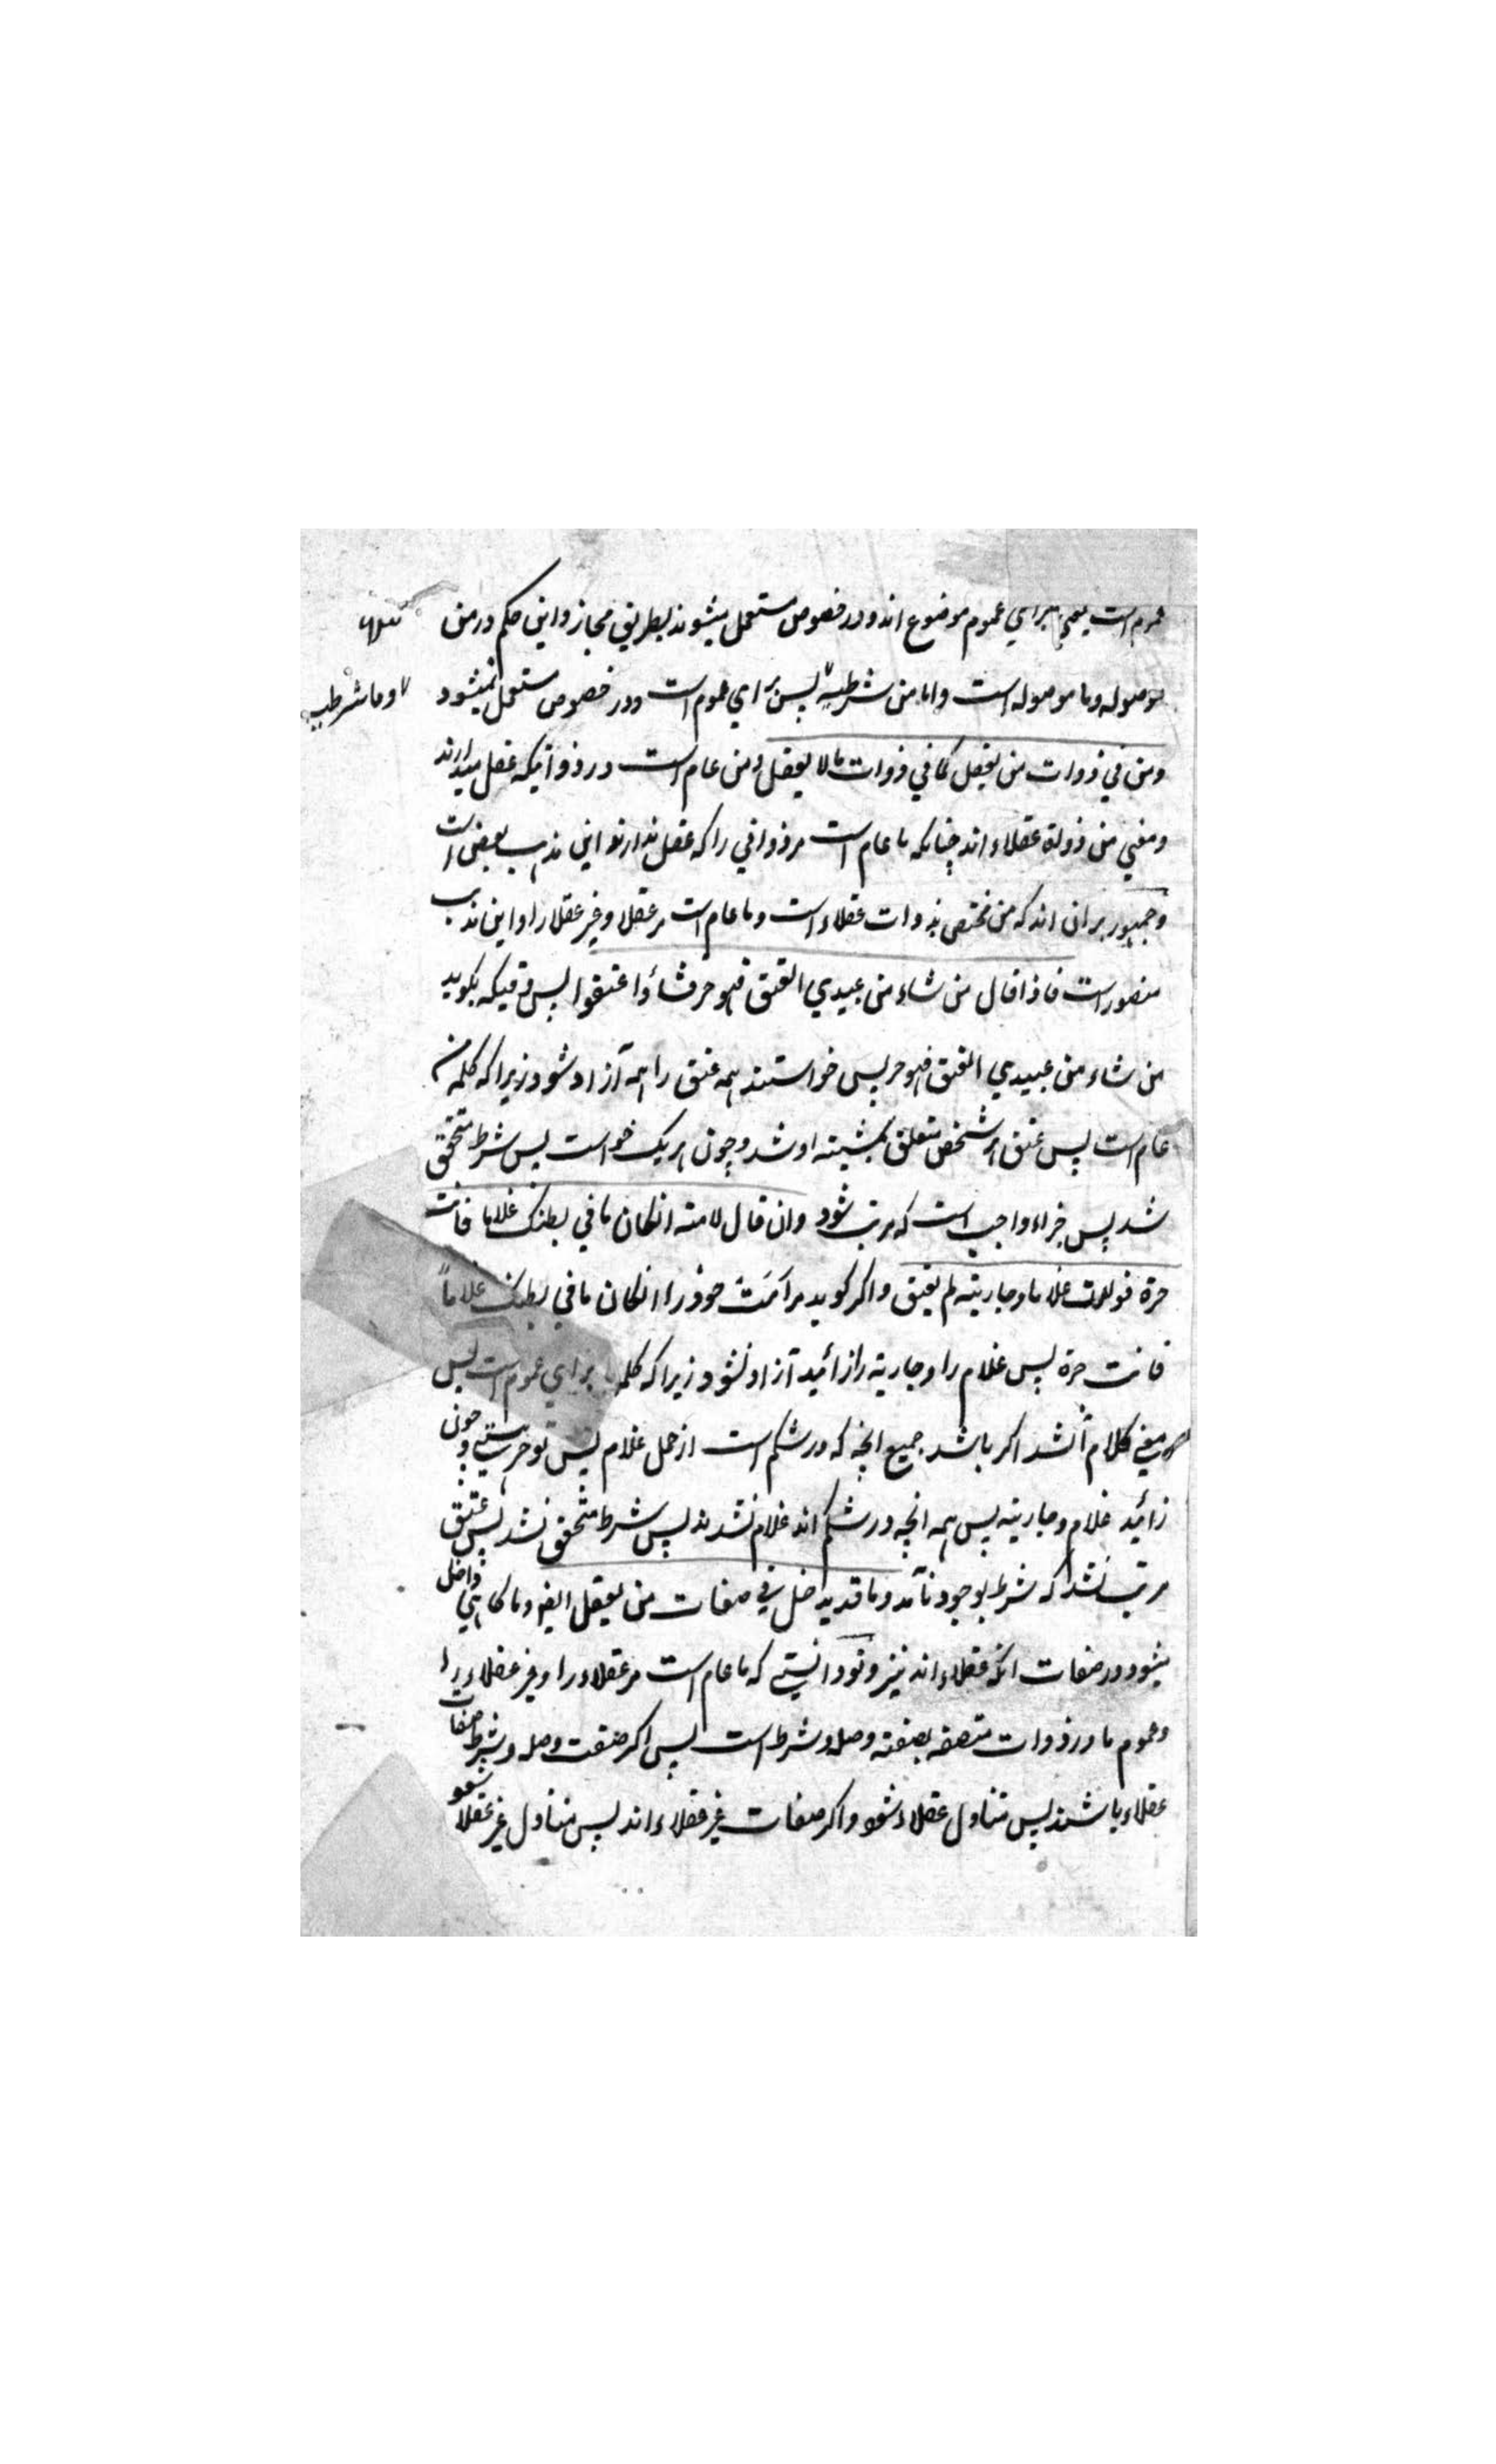 عموم است یعنی برای عموم موضوع اند و در خصوص مستعمل میشوند بطریق مجاز و این حکم در من
موصوله و ما موصوله است و اما من شرطیه پس برای عموم است و در خصوص مستعمل نمیشود
وما شرطیه
ومن في ذوات من یعقل کما في ذوات ما لا یعقل و من عام است در ذواتیکه عقل میدارند
و معني من ذوات عقلاء اند چنانکه ما عام است مر ذواتي را که عقل ندارند و این مذهب بعض است
و جمهور بران اند که من مختص بذوات عقلاء است و ما عام است مر عقلا و غیر عقلا را و این مذهب
منصور است فاذا قال من شاء من عبیدي العتق فهو حر فشاؤا اعتقوا پس وقتیکه بگوید
من شاء من عبیدي العتق فهو حر پس خواستند همه عتق را همه آزاد شود زیرا که کلمه من
عام است پس عتق هر شخص متعلق بمشیته او شد و چون هر یک خواست پس شرط متحقق
شد پس جزاء واجب است که مرتب شود وان قال لامته انکان ما في بطنک غلاما فانت
حرة فولدت غلاما وجاریته لم یعتق و اگر کوید مر امت خود را انکان ما في بطنک غلاماً
فانت حرة پس غلام را و جاریة را زائید آزاد نشود زیرا که کلمه ما برای عموم است پس
معني کلام آنشد اکر باشد جمیع انچه که در شکم است از حمل غلام پس تو حر هستي و چون
زائید غلام و جاریته پس همه انچه در شکم اند غلام نشدند پس شرط متحقق نشد پس عتق
مرتب نشد که شرط بوجود نآمد وما قد یدخل في صفات من یعقل ایضا و ما کاهي داخل
میشود در صفات آنکه عقلاء اند نیز و تو دانستي که ما عام است مر عقلاء را و غیر عقلاء را
و عموم ما در ذوات متصفه بصفته وصله و شرط است پس اکر صفت وصله و شرط صفات
عقلاء باشند پس متناول عقلاء شود و اکر صفات غیر عقلاء اند پس متناول غیر عقلا شود